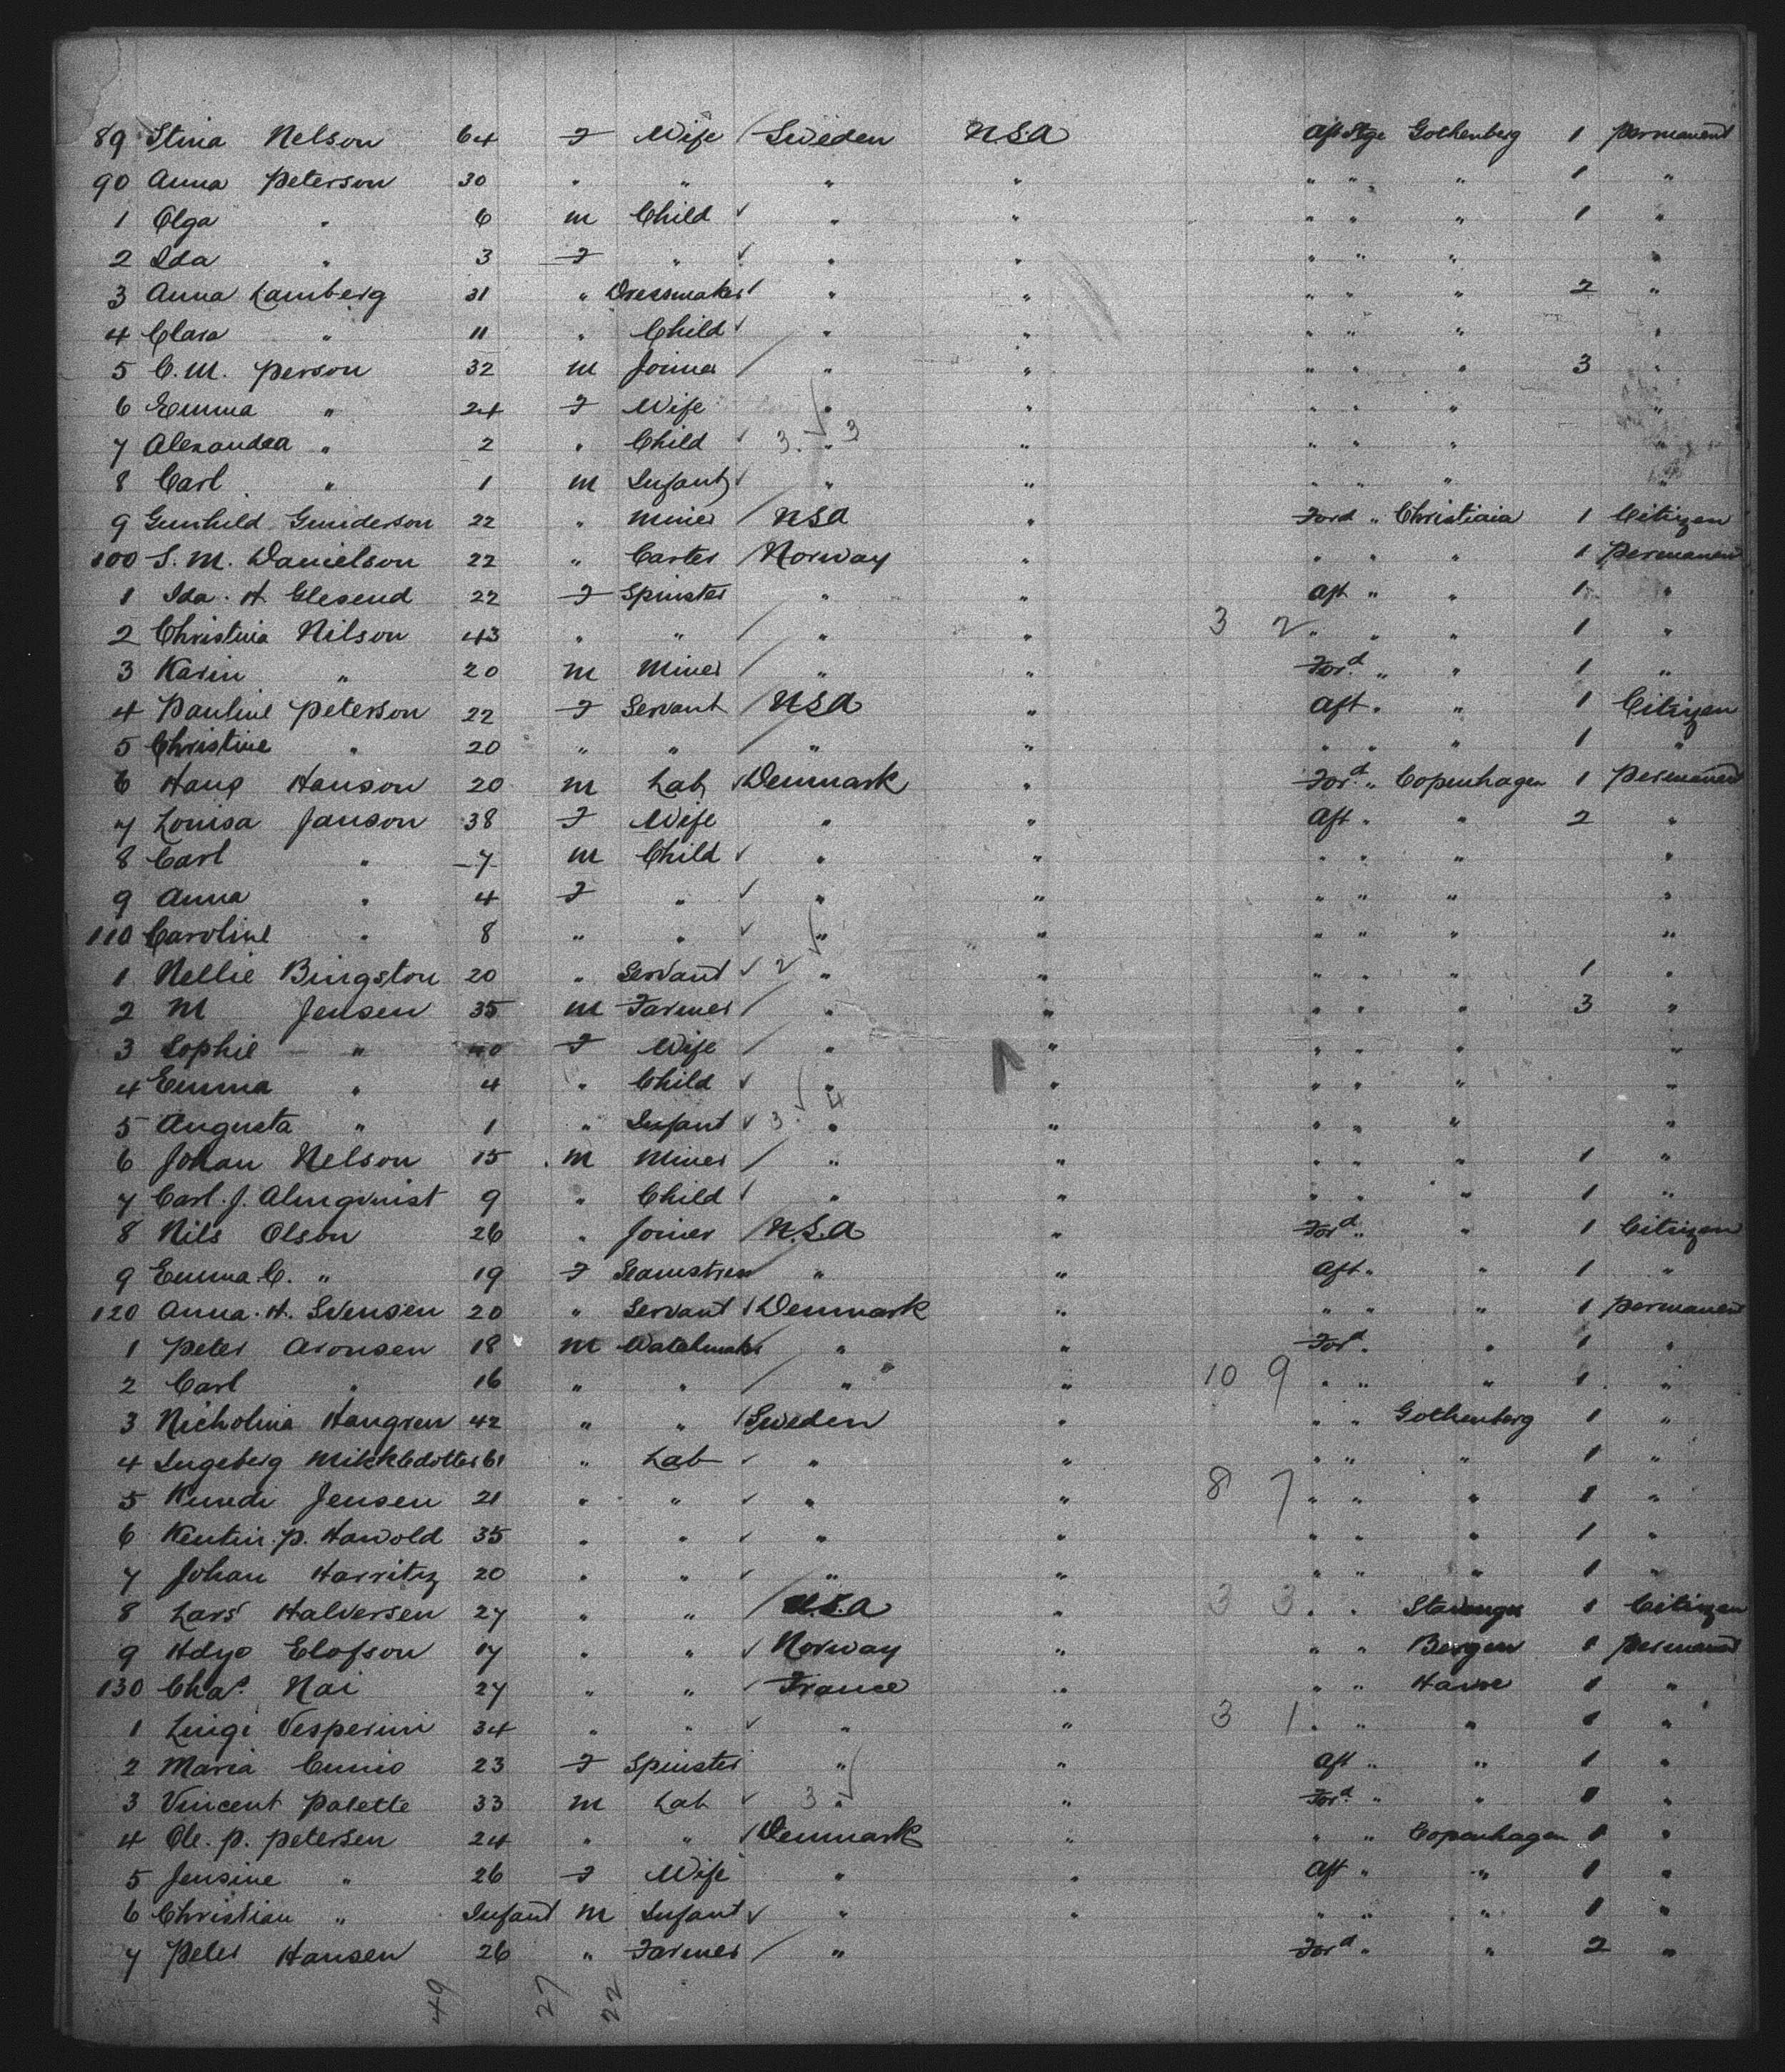 89 Stina Nelson 64 F Wife / Sweden U.S.A Aft Stge Gothenberg 1 permanent
90 Anna Peterson 30 " " " " " " " 1 "
1 Olga " 6 m Child ✓ " " " " " 1 "
2 Ida " 3 F " ✓ " " " " " "
3 Anna Lamberg 31 " Dressmaker ✓ " " " " " 2 "
4 Clara " 11 " Child ✓ " " " " " "
5 C. M. Person 32 m Joiner / " " " " " 3 "
6 Emma " 24 F Wife " " " " " "
7 Alexandra " 2 " Child ✓ 3 ✓ 3 " " " " " "
8 Carl " 1 m Infant ✓ " " " " " "
9 Gunhild Gunderson 22 " Miner / USA " Ford " Christiaia 1 Citizen
100 S. M. Danielson 22 " Carter / Norway " " " " 1 permanent
1 Ida. H Glesend 22 F Spinster " " Aft " " 1 "
2 Christina Nilson 43 " " / " " 3 2 " " " 1 "
3 Karin " 20 m Miner / " " Ford " " 1 "
4 Pauline Peterson 22 F Servant / USA " Aft " " 1 Citizen
5 Christine " 20 " " / " " " " " 1 "
6 Hans Hanson 20 m Lab ✓ Denmark " Ford " Copenhagen 1 permanent
7 Louisa Janson 38 F Wife " " Aft " " 2 "
8 Carl " 7 m Child ✓ " " " " " "
9 Anna " 4 F " ✓ " " " " " "
110 Caroline " 8 " " ✓ " " " " " "
1 Nellie Bingston 20 " Servant ✓ 2 ✓ " " " " " 1 "
2 M Jensen 35 m Farmer / " " " " " 3 "
3 Sophie " 40 F Wife / " " " " " "
4 Emma " 4 " Child ✓ " " " " " "
5 Augusta " 1 " Infant ✓ 3 ✓ 4 " " " " " "
6 Johan Nelson 15 m Miner / " " " " " 1 "
7 Carl. J. Almqvist 9 " Child ✓ " " " " " 1 "
8 Nils Olson 26 " Joiner / U.S.A " Ford " " 1 Citizen
9 Emma. C. " 19 F Seamstress " " Aft " " 1 "
120 Anna. H. Svensen 20 " Servant / Denmark " " " " 1 permanent
1 Peter Aronsen 18 m Watchmaker " " Ford " " 1 "
2 Carl " 16 " " / " " 10 9 " " " 1 "
3 Nicholina Hangren 42 " " / Sweden " " " Gothenberg 1 "
4 Ingeberg Mikkledotter 61 " Lab ✓ " " " " " 1 "
5 Jensen 21 " " ✓ " " 8 7 " " " 1 "
6 P. Hawold 35 " " ✓ " " " " " 1 "
7 Johan Harritz 20 " " ✓ " " " " " 1 "
8 Lars Halversen 27 " " / U.S.A " 3 3 " " Stavenger 1 Citizen
9 Elofson 17 " " ✓ Norway " " " Bergen 1 permanent
130 Chas. Nai 27 " " ✓ France " " " Havre 1 "
1 Luigi Vesperini 34 " " ✓ " " 3 1 " " " 1 "
2 Maria Cunio 23 F Spinster " " Aft " " 1 "
3 Vincent Palette 33 m Lab ✓ 3 ✓ " " Ford " " 1 "
4 Ole. P. Petersen 24 " " / Denmark " " " Copenhagen 1 "
5 Jensine " 26 F Wife " " Aft " " 1 "
6 Christian " Infant m Infant ✓ " " " " " 1 "
7 Peter Hansen 26 " Farmer / " " Ford " " 2 "
49 27 22